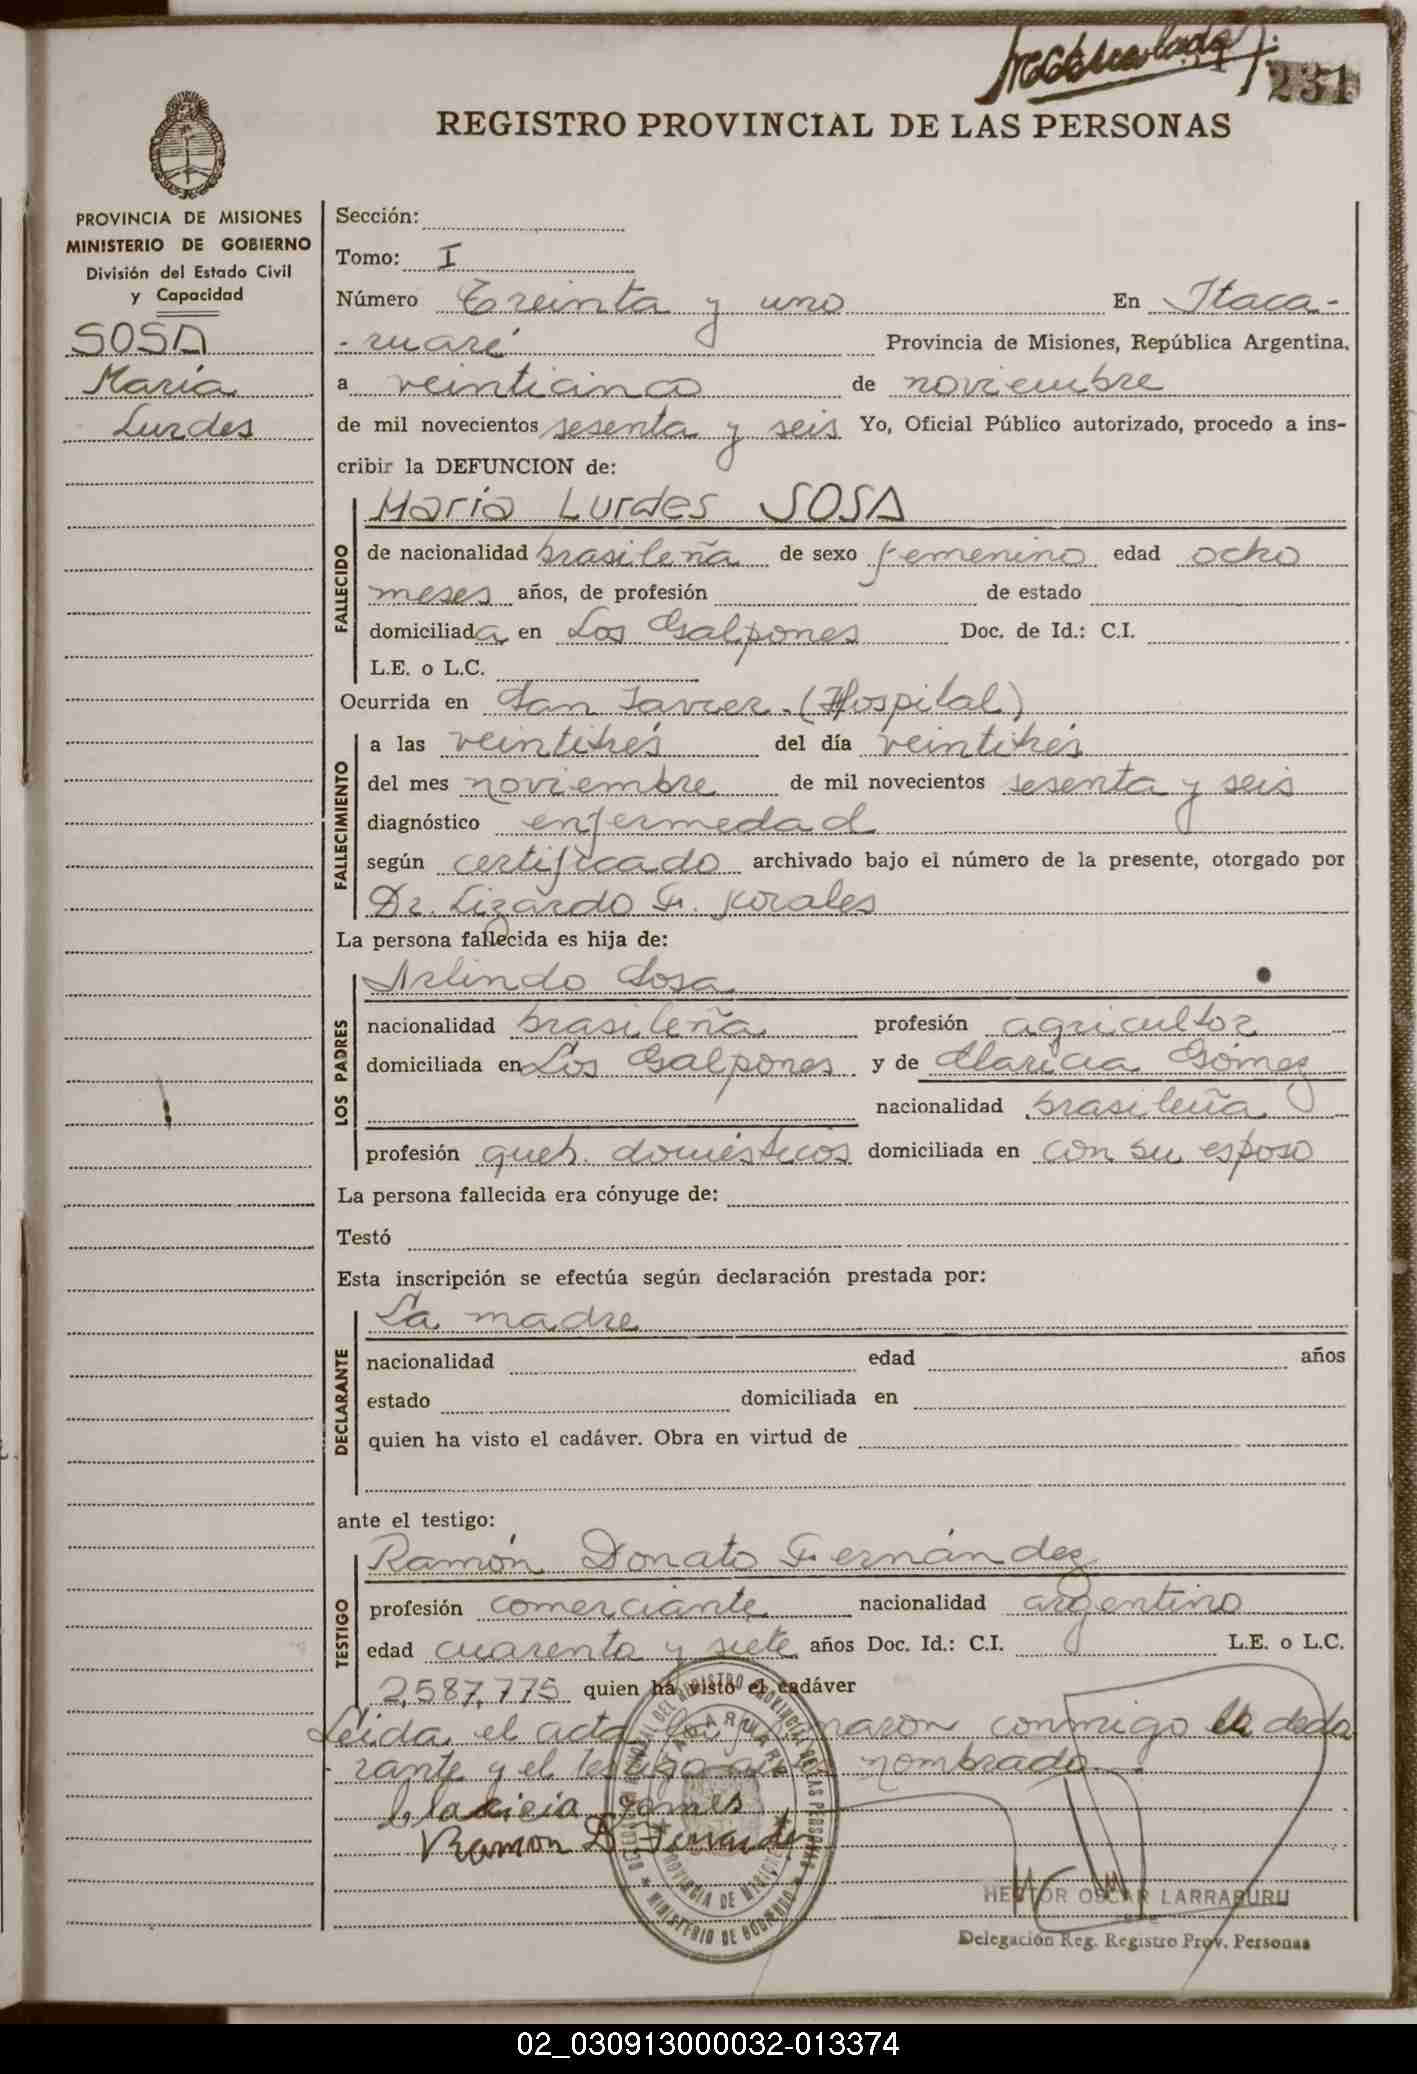 231
REGISTRO PROVINCIAL DE LAS PERSONAS
PROVINCIA DE MISIONES
MINISTERIO DE GOBIERNO
División del Estado Civil
y Capacidad
SOSA
María
Lurdes
Sección:
Tomo: I
Número Treinta y uno En Itaca-
-ruaré Provincia de Misiones, República Argentina,
a veinticinco de noviembre
de mil novecientos sesenta y seis Yo, Oficial Público autorizado, procedo a ins-
cribir la DEFUNCION de:
María Lurdes SOSA
FALLECIDO
de nacionalidad brasileña de sexo femenino edad ocho
meses años, de profesión de estado
domiciliada en Los Galpones Doc. de Id.: C.I.
L.E. o L.C.
Ocurrida en San Javier. (Hospital)
FALLECIMIENTO
a las veintitrés del día veintitrés
del mes noviembre de mil novecientos sesenta y seis
diagnóstico enfermedad
según certificado archivado bajo el número de la presente, otorgado por
Dr. Lizardo F.
La persona fallecida es hija de:
LOS PADRES
Arlindo Sosa
nacionalidad brasileña profesión agricultor
domiciliada en Los Galpones y de Claricia Gómez
nacionalidad brasileña
profesión queh. domésticos domiciliada en con su esposo
La persona fallecida era cónyuge de:
Testó
Esta inscripción se efectúa según declaración prestada por:
DECLARANTE
La madre
nacionalidad edad años
estado domiciliada en
quien ha visto el cadáver. Obra en virtud de
ante el testigo:
TESTIGO
Ramón Donato Fernández
profesión comerciante nacionalidad argentino
edad cuarenta y siete años Doc. Id.: C.I. L.E. o L.C.
2,587,775 quien ha visto el cadáver
Leida el acta la firmaron conmigo la decla
rante y el testigo nombrado.
Gomes
Ramon D Fernandez
REGISTRO PROVINCIAL DE LAS PERSONAS
ITACARUARE
PROVINCIA DE MISIONES
MINISTERIO DE GOBIERNO
HECTOR OSCAR LARRABURU
Delegación Reg. Registro Prov. Personas
02_030913000032-013374